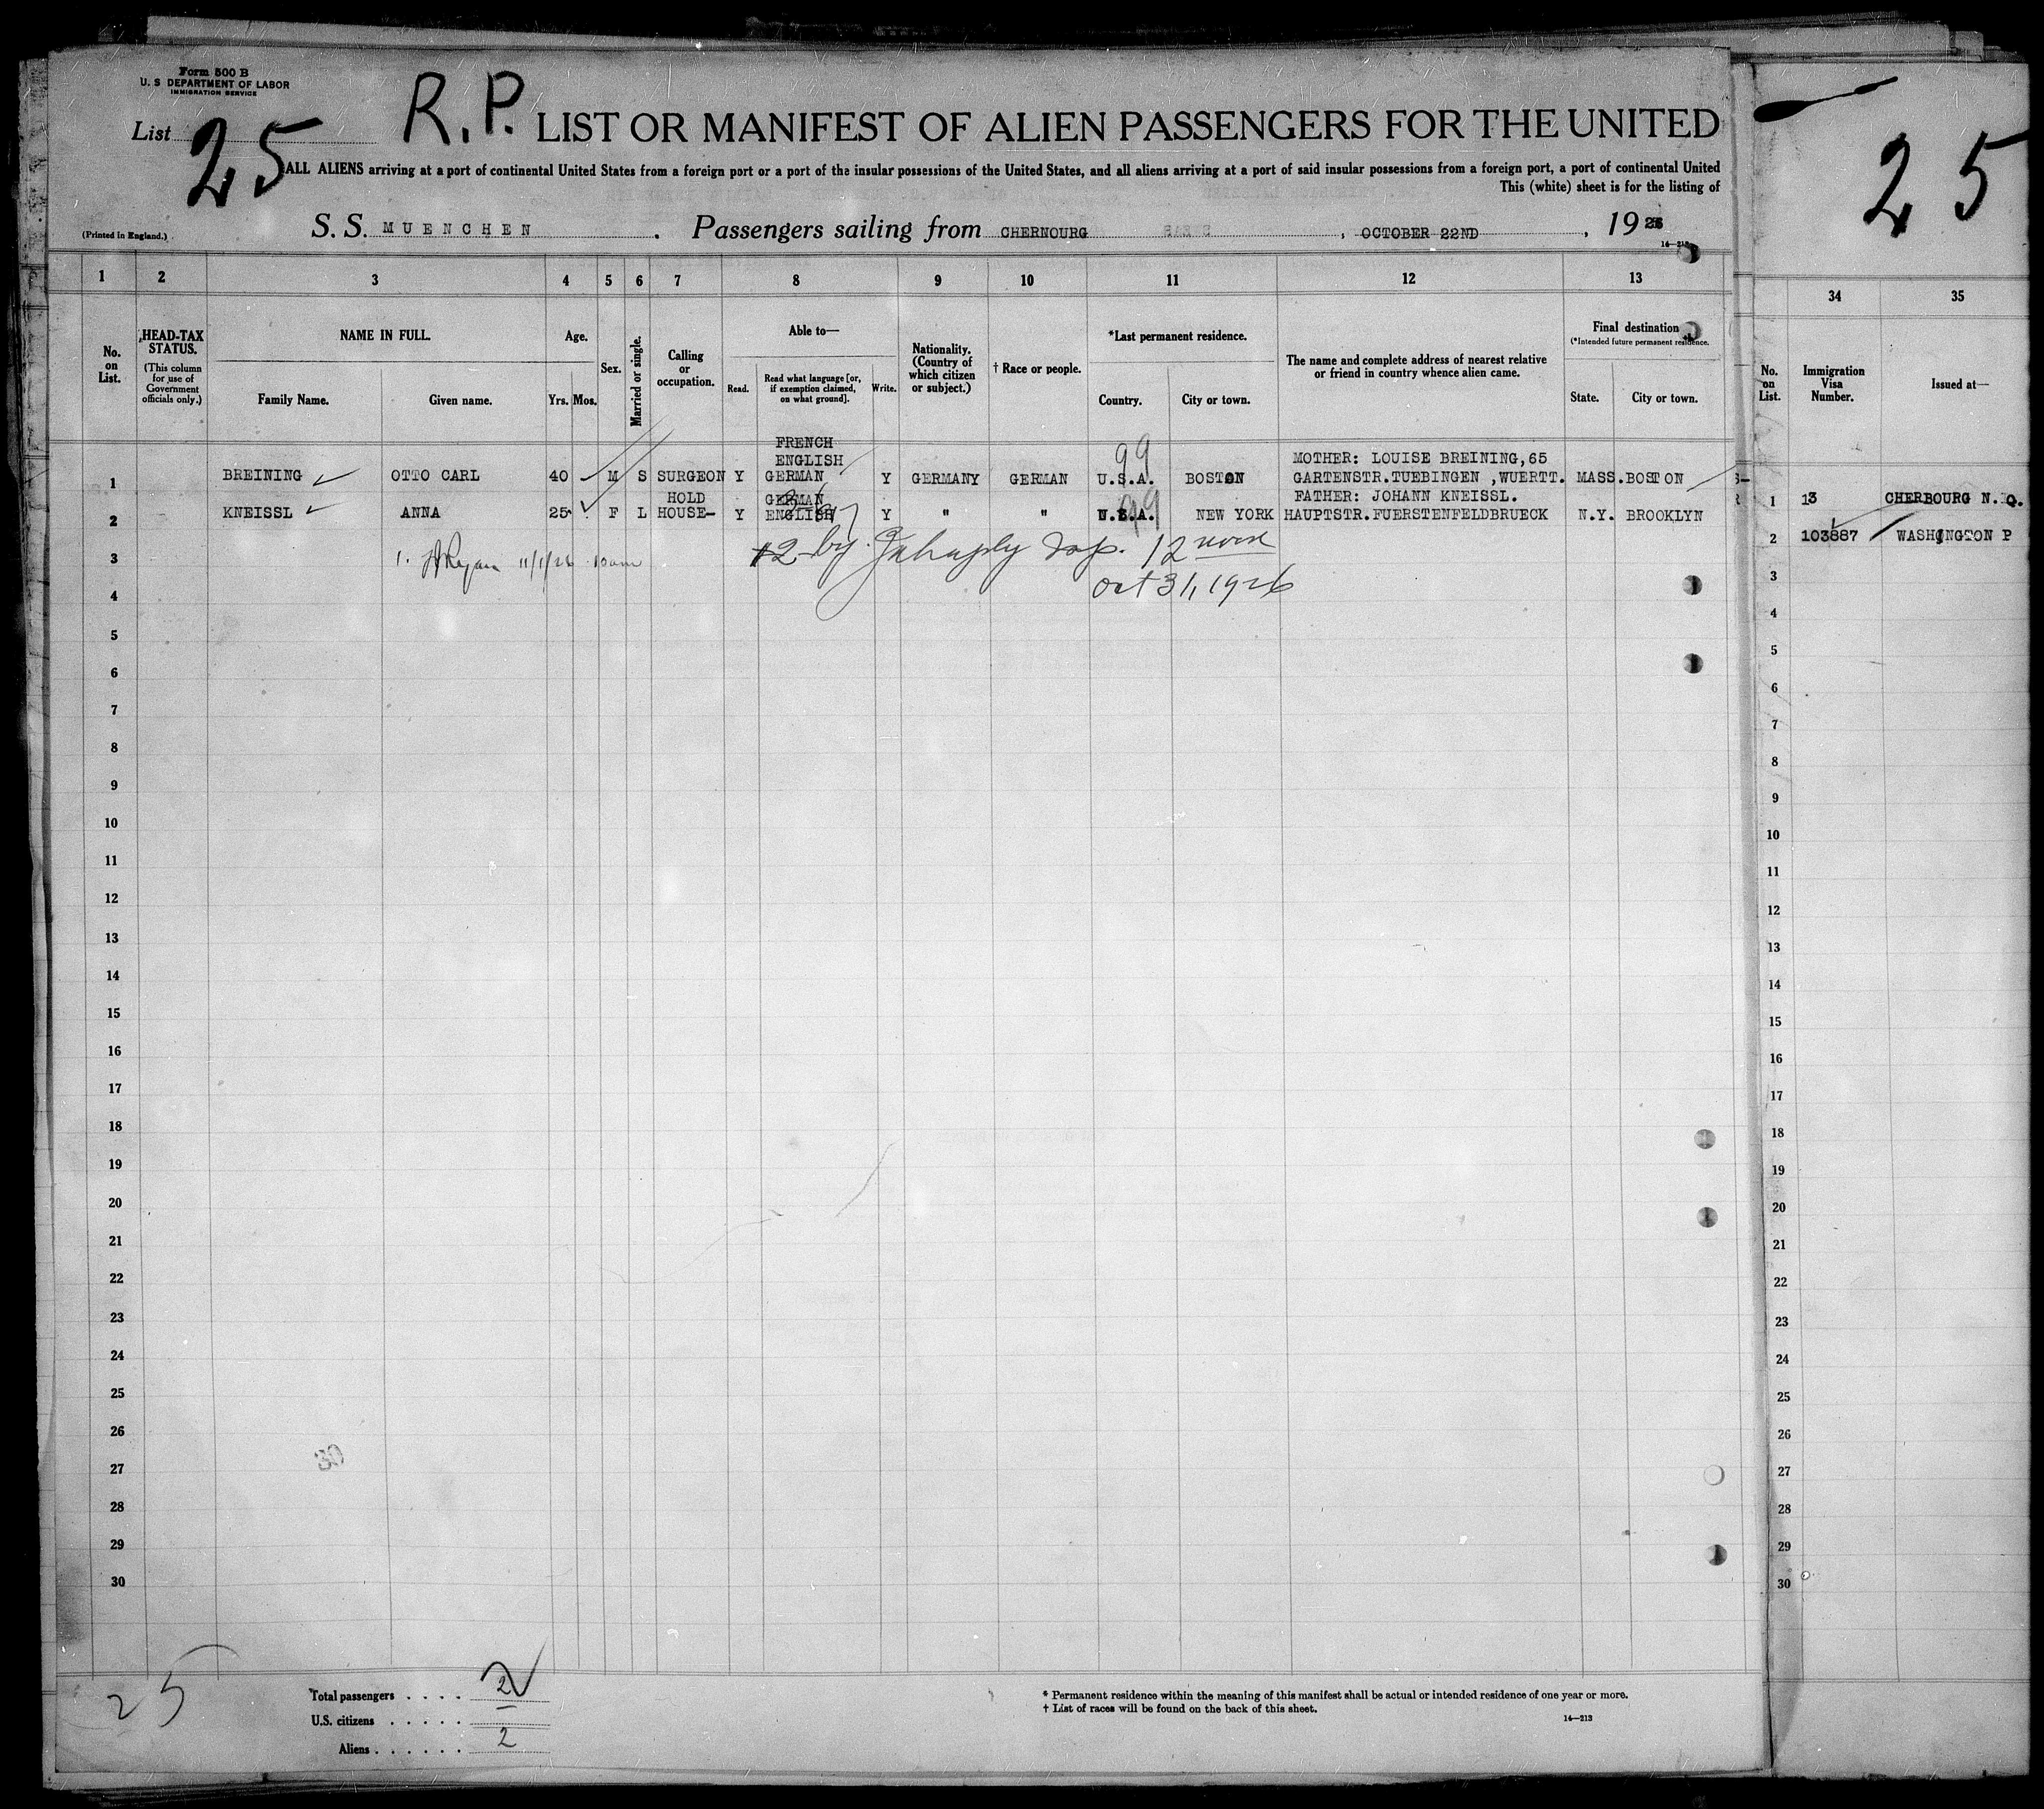 Form 500 B
U. S DEPARTMENT OF LABOR
IMMIGRATION SERVICE
List 25
R.P.
LIST OR MANIFEST OF ALIEN PASSENGERS FOR THE UNITED
ALL ALIENS arriving at a port of continental United States from a foreign port or a port of the insular possessions of the United States, and all aliens arriving at a port of said insular possessions from a foreign port, a port of continental United
This (white) sheet is for the listing of
(Printed in England.)
S. S. MUENCHEN . Passengers sailing from CHERNOURG , OCTOBER 22ND , 19 26
14—213
1 2 3 4 5 6 7 8 9 10 11 12 13
No. on List.
HEAD-TAX STATUS.
(This column for use of Government officials only.)
NAME IN FULL.
Family Name. Given name.
Age.
Yrs. Mos.
Sex.
Married or single.
Calling or occupation.
Able to—
Read. Read what language [or, if exemption claimed, on what ground]. Write.
Nationality. (Country of which citizen or subject.)
† Race or people.
*Last permanent residence.
Country. City or town.
The name and complete address of nearest relative or friend in country whence alien came.
Final destination
(*Intended future permanent residence.
State. City or town.
FRENCH
ENGLISH
99
MOTHER: LOUISE BREINING,65
1 BREINING OTTO CARL 40 M S SURGEON Y GERMAN Y GERMANY GERMAN U.S.A. BOSTON GARTENSTR.TUEBINGEN ,WUERTT. MASS. BOSTON
HOLD GERMAN FATHER: JOHANN KNEISSL.
2 KNEISSL ANNA 25 F L HOUSE- Y ENGLISH Y " " U.S.A. 99 NEW YORK HAUPTSTR.FUERSTENFELDBRUECK N.Y. BROOKLYN
3 1. 11/1/26 10am
#2 by 12 noon
4 Oct 31, 1926
5
6
7
8
9
10
11
12
13
14
15
16
17
18
19
20
21
22
23
24
25
26
27
28
29
30
25
Total passengers . . . . 2
U.S. citizens . . . . . .
Aliens . . . . . . 2
* Permanent residence within the meaning of this manifest shall be actual or intended residence of one year or more.
† List of races will be found on the back of this sheet.
14—213
25
34 35
No. on List.
Immigration Visa Number.
Issued at—
1 13 CHERBOURG N.Q.
2 103887 WASHINGTON P
3
4
5
6
7
8
9
10
11
12
13
14
15
16
17
18
19
20
21
22
23
24
25
26
27
28
29
30